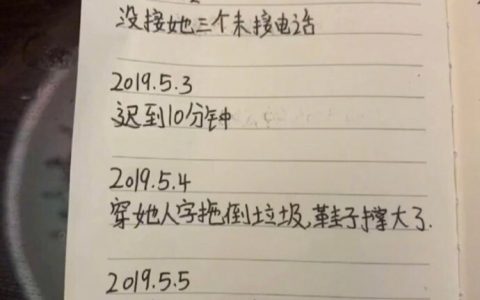 没接她三个未接电话
2019.5.3
迟到10分钟
2019.5.4
穿她人字拖倒垃圾,鞋子撑大了.
2019.5.5